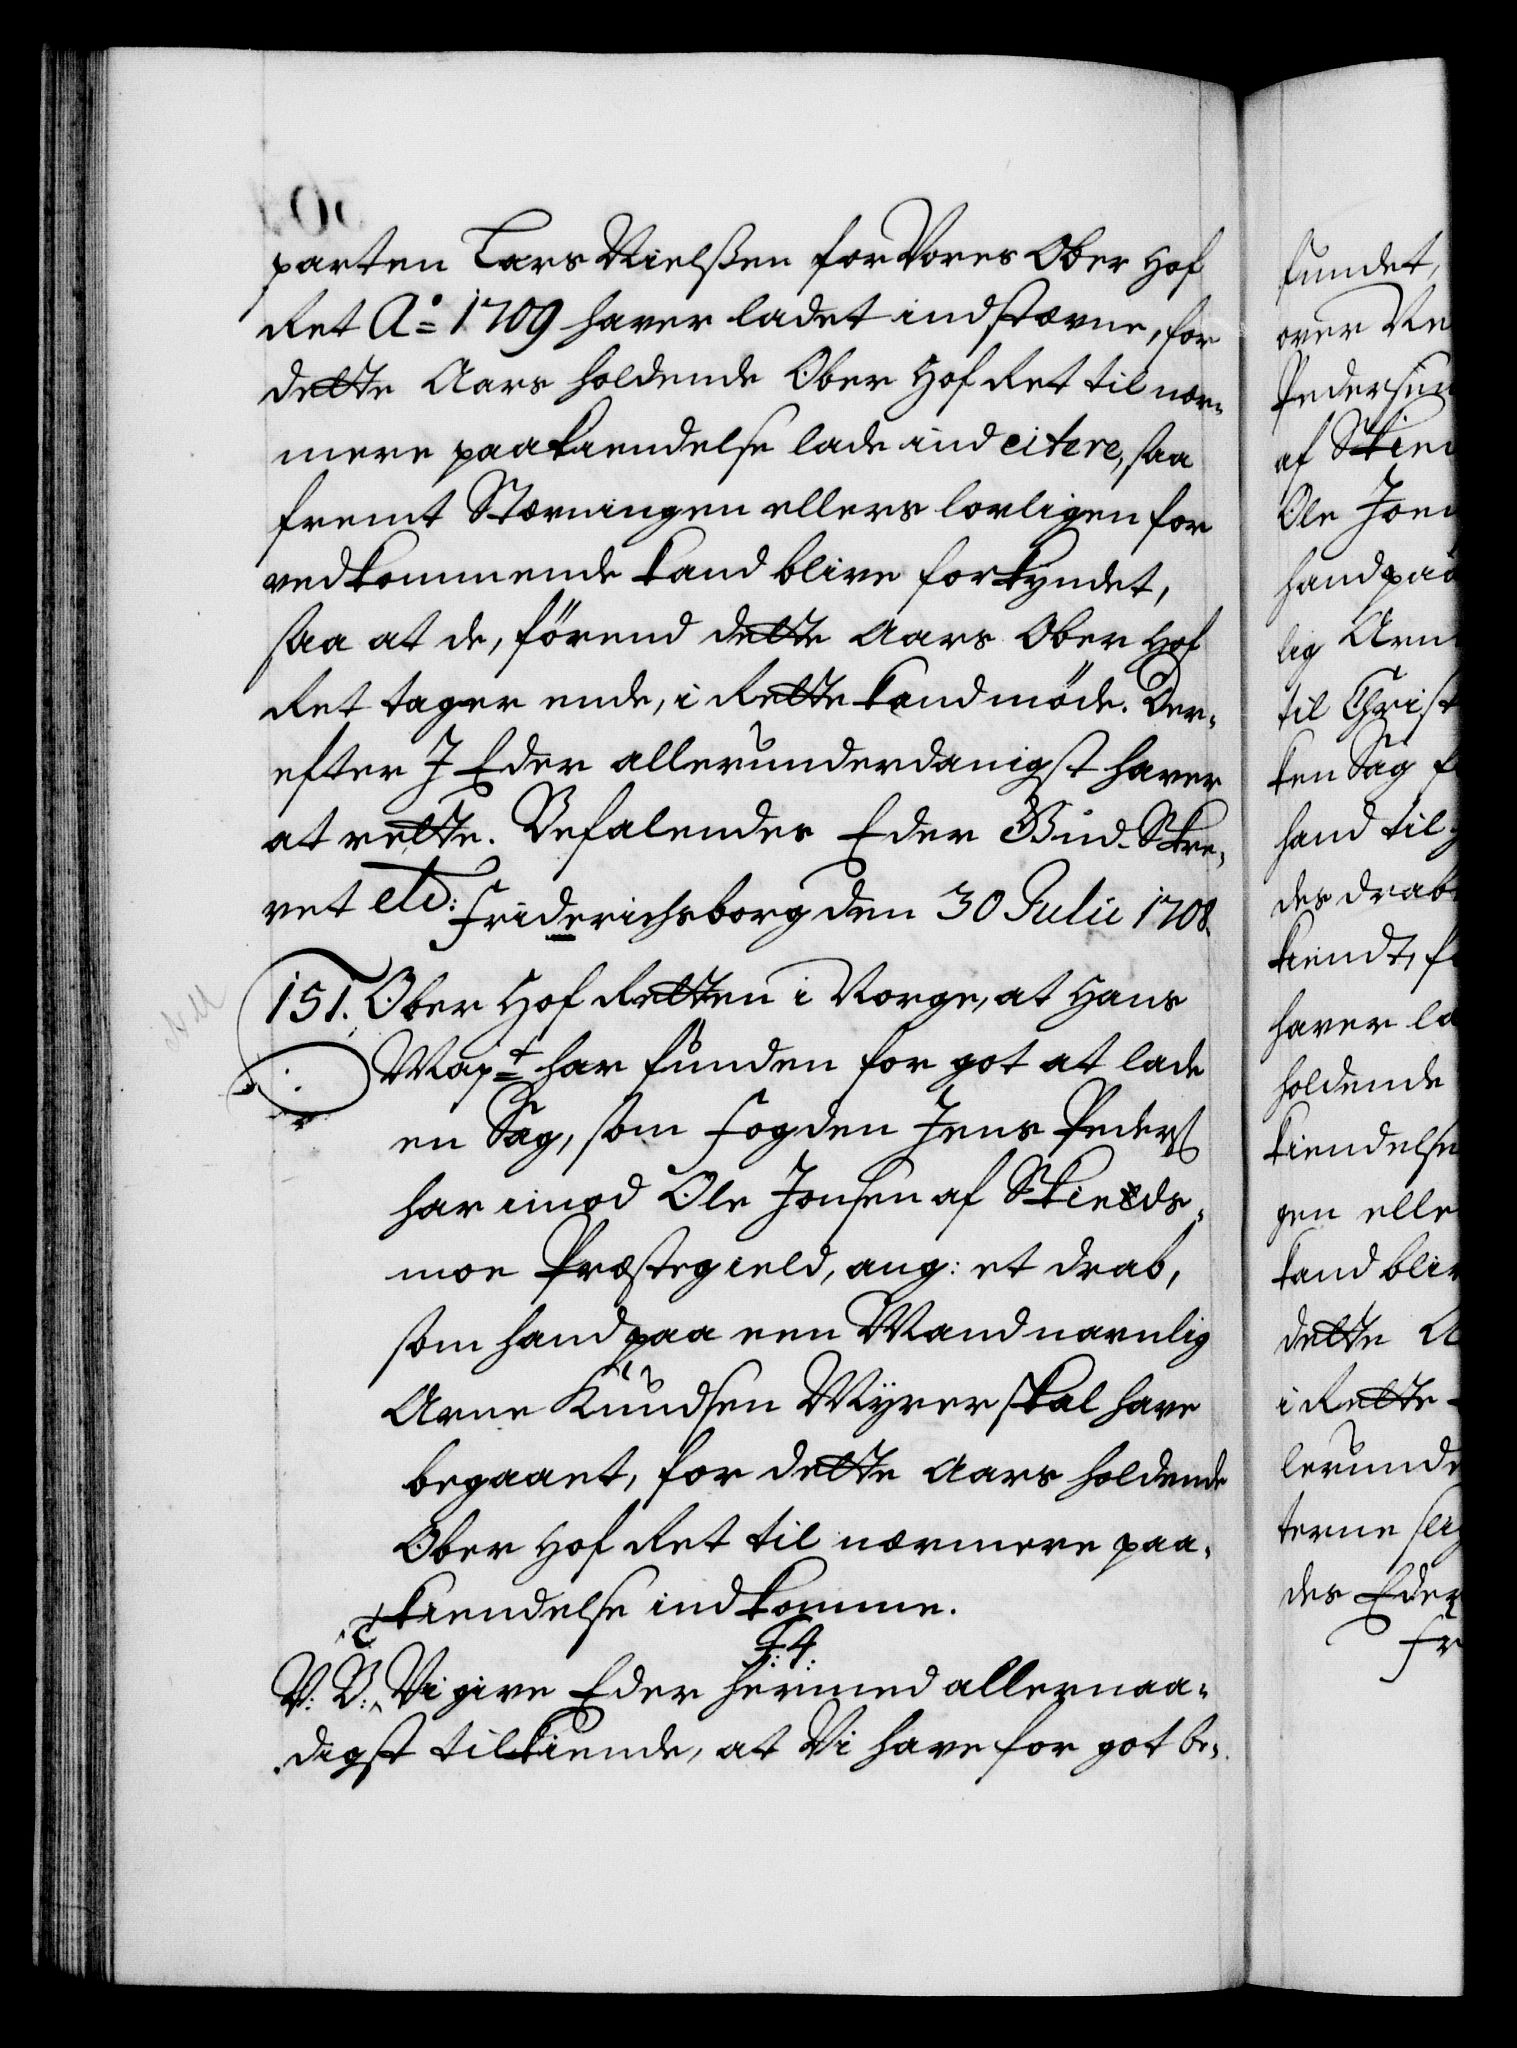 parten Lars Nielssen for Vores Ober Hof
Ret Ao= 1709 haver ladet indstævne, for
dette Aars holdende Ober Hof Ret til nær,
mere paakiendelse lade ind citere, saa
fremt Stævningen ellers lovligen for
vedkommende kand blive forkyndet,
saa at de, förend dette Aars Ober Hof
Ret tager ende, i Rette kand möde. Der,
efter I Eder allerunderdanigst haver
at rette. Befalendes Eder Gud. Skre,
vet etc: Friderichsborg den 30 Julii 1708.
151. Ober Hof Retten i Norge, at Hans
Majt= har funden for got at lade
en Sag, som Fogden Jens Peders
har imod Ole Jonsen af Skieds,
moe Præstegield, ang: et drab,
som hand paa een Mand navnlig
Arne Knudsen Myrer skal have
begaaet, for dette Aars holdende
Ober Hof Ret til nærmere paa,
kiendelse indkomme.
F: 4:
V: G: Vi give Eder hermed allernaa,
digst tilkiende, at Vi have for got be,
fundet,
over Ne
Pedersen
af Skied
Ole Jon
hand paa
lig Arn
til Christ
ken Sag f
hand til
des drab
kiendt, f
haver la
holdende
kiendelse
gen elle
kand bliv
dette A
i Rette
lerunde
terne
des Eder
Fr